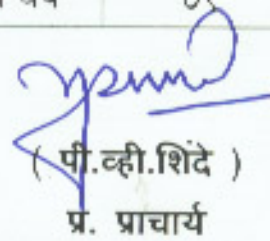 ( पी.व्ही.शिंदे )
प्र. प्राचार्य